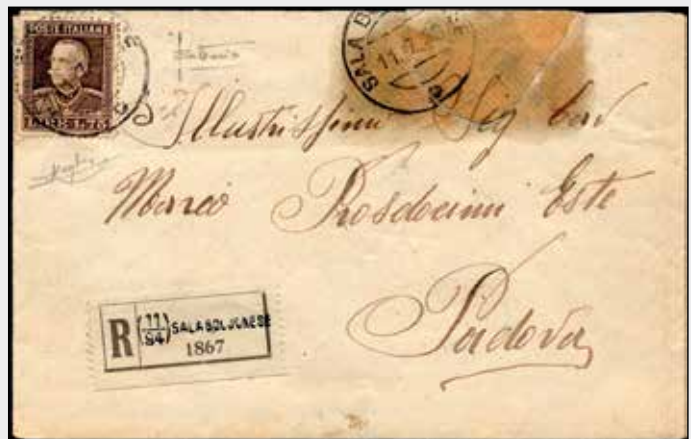 POSTE ITALIANE
LIRE 1,75
SALA B
11.
Illustrissimo Sig Cav
Marco Prosdocimi Este
Padova
R (11/94) SALA BOLOGNESE
1867